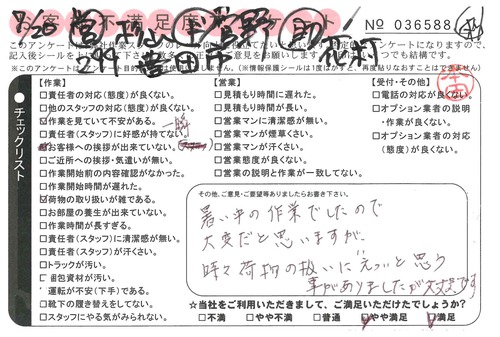 7/26
お客様不満足度アンケート
No 036588
記入後シールを
【作業】
□責任者の対応(態度)が良くない。
□他のスタッフの対応(態度)が良くない。
□作業を見ていて不安がある。
□責任者(スタッフ)に好感が持てない。
お客様への挨拶が出来ていない。
□ご近所への挨拶・気遣いが無い。
□作業開始前の内容確認がなかった。
□作業開始時間が遅れた。
荷物の取り扱いが雑である。
□お部屋の養生が出来ていない。
□作業時間が長すぎる。
□責任者(スタッフ)に清潔感が無い。
□責任者(スタッフ)が汗くさい。
□トラックが汚い。
□梱包資材が汚い。
運転が不安(下手)である。
□靴下の履き替えをしてない。
□スタッフにやる気がみられない。
チェックリスト
【営業】
□見積もり時間に遅れた。
□見積もり時間が長い。
□営業マンに清潔感が無い。
□営業マンが煙草くさい。
□営業マンが汗くさい。
□営業態度が良くない。
□営業の説明と作業が一致してない。
【受付・その他】
□電話の対応が良くない。
□オプション業者の説明
・作業が良くない。
□オプション業者の対応
(態度)が良くない。
その他、ご意見・ご要望等ありましたらお書き下さい。
暑い中の作業でしたので
大変だと思いますが、
時々荷物の扱いに"えっ"と思う
事がありましたが大丈夫です
☆当社をご利用いただきまして、ご満足いただけたでしょうか?
□不満 □やや不満 □普通 □やや満足 □満足